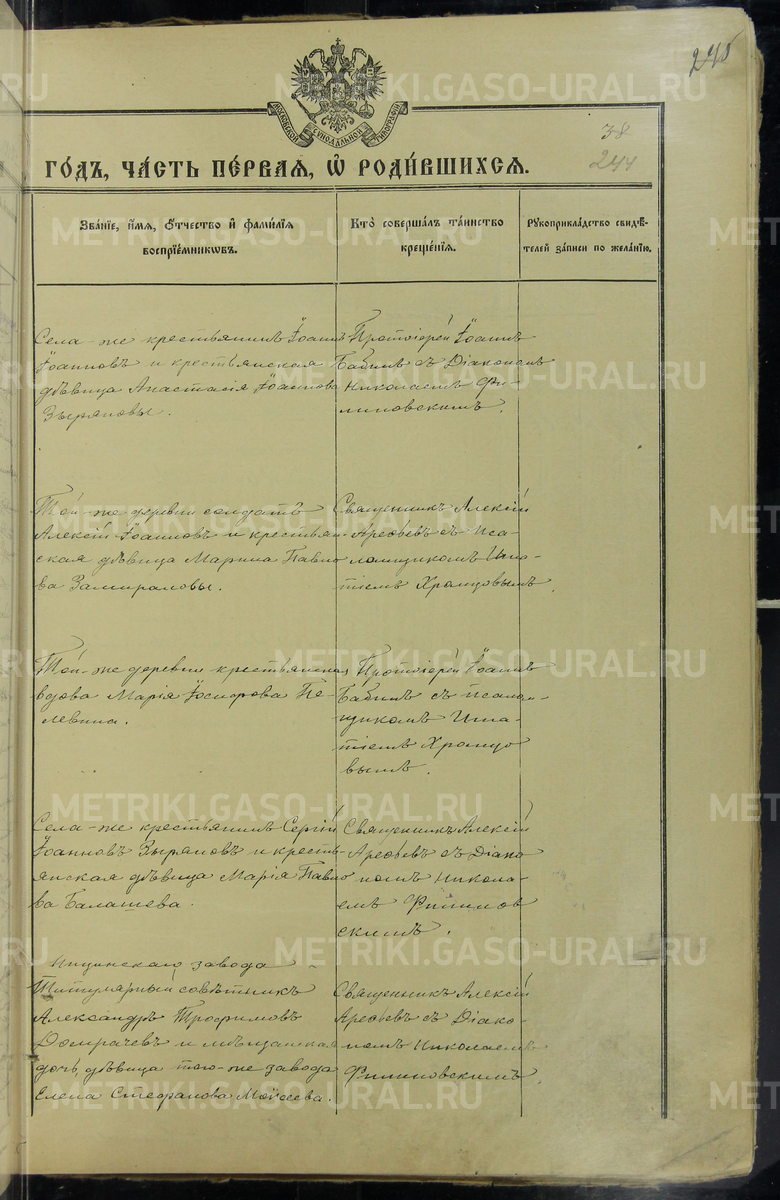 245
МОСКОВСКОЙ СѴНОДАЛЬНОЙ ТИПОГРАФІИ
38
244
ГО́ДЪ, ЧА́СТЬ ПЕ́РВАЯ, Ѡ҆ РОДИ́ВШИХСЯ.
Зва́нїе, и҆́мя, Ѻ҆́тчество и҆ фами́лїя
воспрїе́мниковъ.
Кто̀ соверша́лъ та́инство
креще́нїя.
Рꙋкоприкла́дство свидѣ́-
телей за́писи по жела́нїю.
Села-же крестьянинъ Іоаннъ
Іоанновъ и крестьянская
дѣвица Анастасія Іоаннова
Зыряновы.
Протоіерей Іоаннъ
Бабинъ съ Діакономъ
Николаемъ Фи-
линовскимъ.
Той-же деревни солдатъ
Алексій Іоанновъ и крестьян
ская дѣвица Марина Павло
ва Замираловы.
Священникъ Алексій
Арефьевъ съ Пса-
ломщикомъ Игна-
тіемъ Храмцовымъ.
Той-же деревни крестьянская
вдова Марія Іосифова Пе-
левина.
Протоіерей Іоаннъ
Бабинъ съ псалом-
щикомъ Игна-
тіемъ Храмцо
вымъ.
Села-же крестьянинъ Сергій
Іоанновъ Зыряновъ и кресть-
янская дѣвица Марія Павло
ва Балашева.
Священникъ Алексій
Арефьевъ съ Діако
номъ Никола-
емъ Филинов
скимъ.
Ницинскаго завода
Титулярный совѣтникъ
Александръ Трофимовъ
Домрачевъ и мѣщанская
дочь, дѣвица того-же завода
Елена Стефанова Моисеева.
Священникъ Алексій
Арефьевъ съ Діако-
номъ Николаемъ
Филиновскимъ.
METRIKI.GASO-URAL.RU